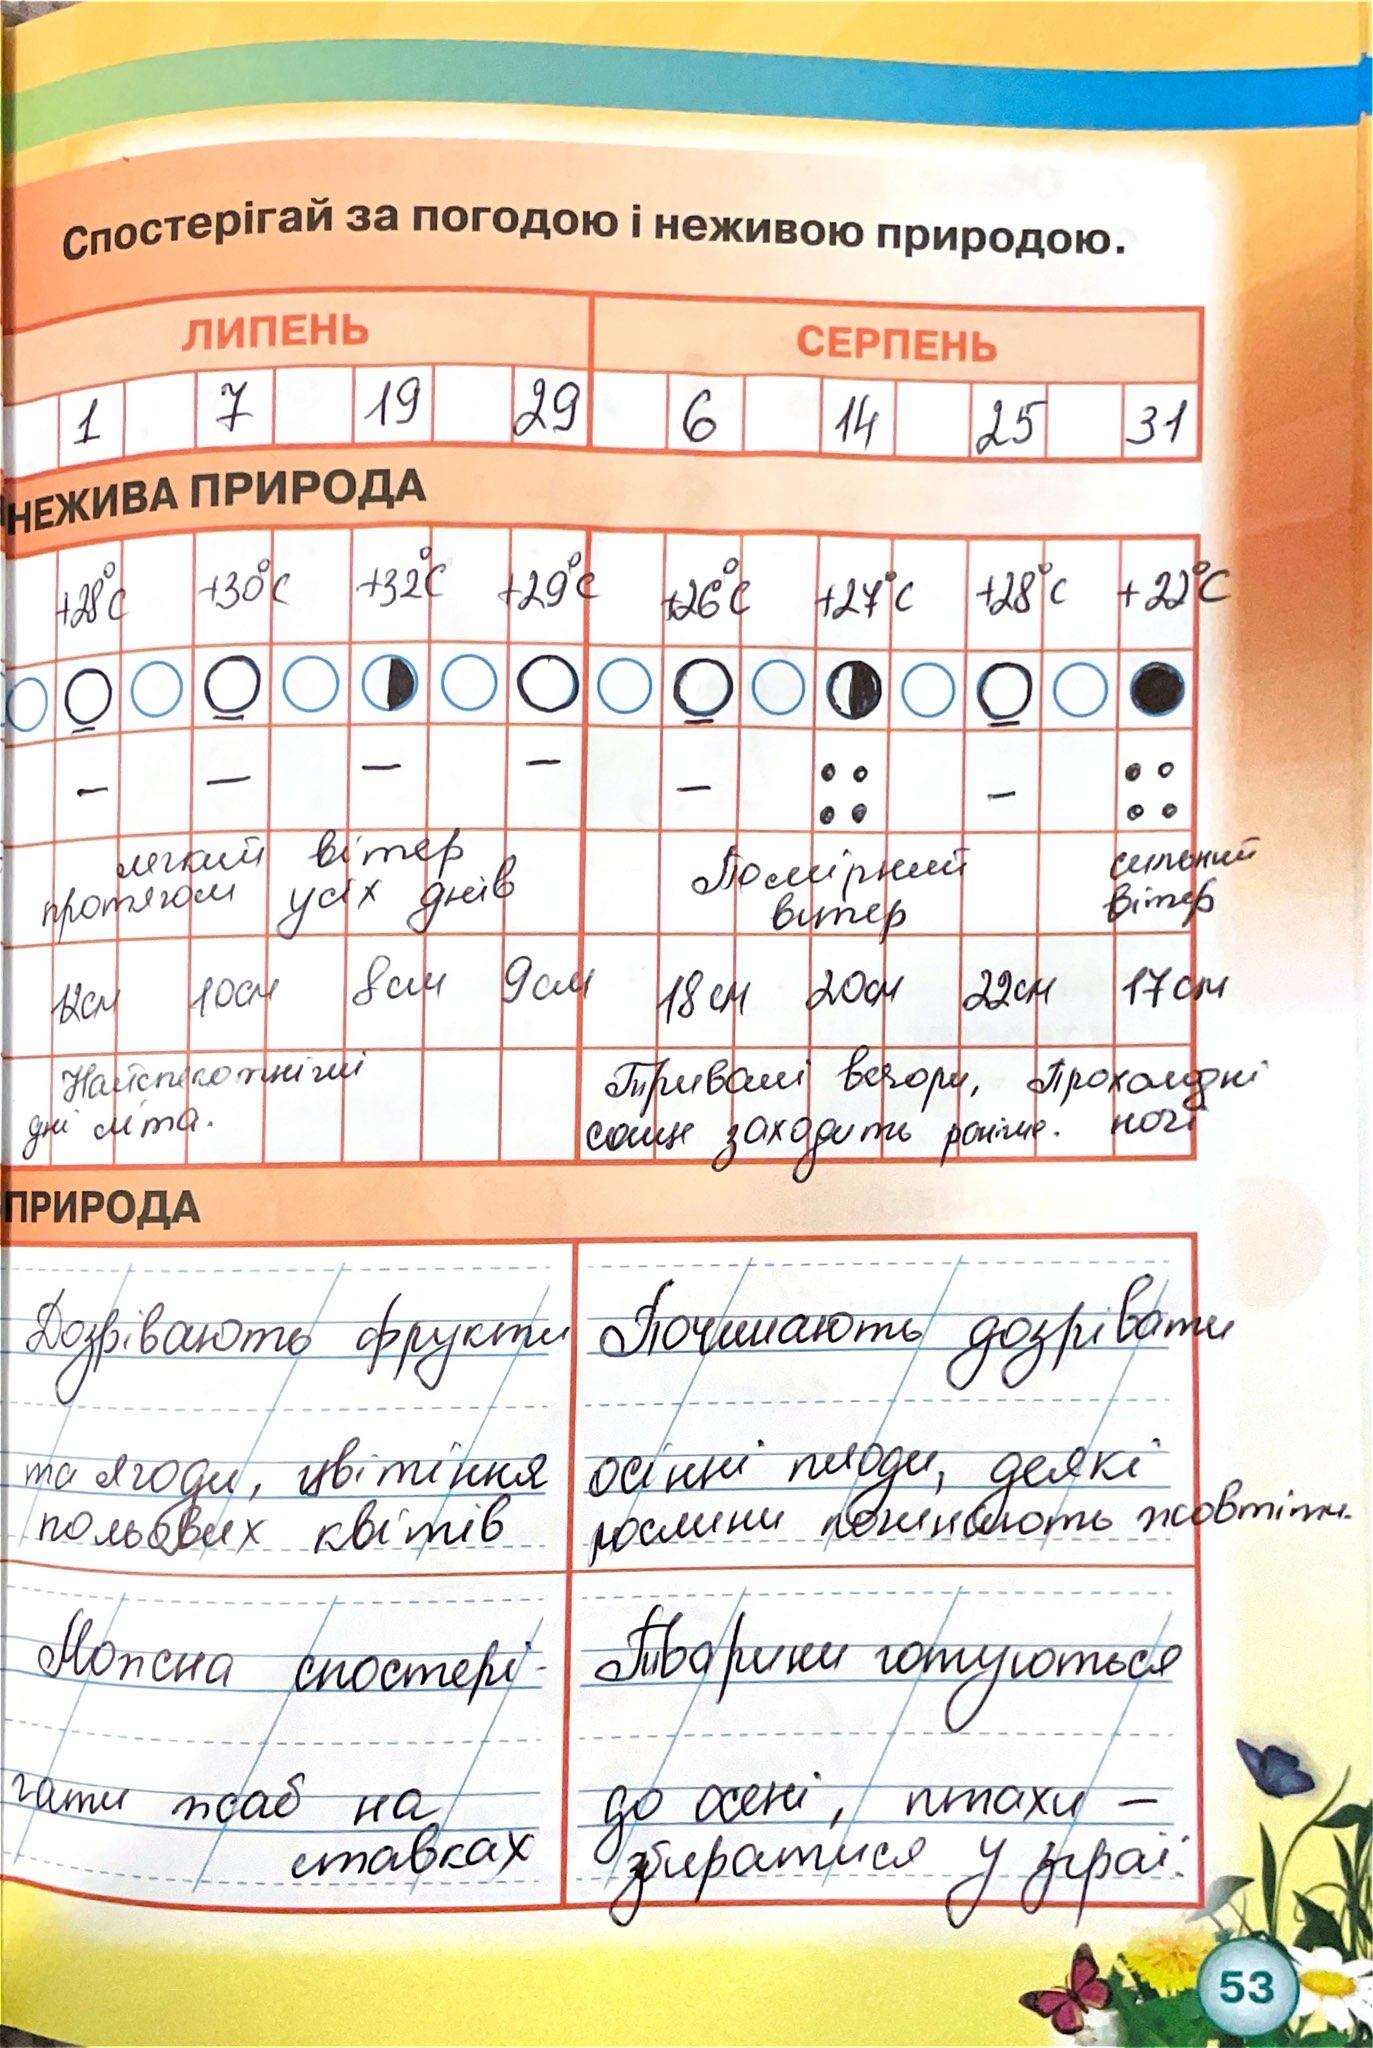 Спостерігай за погодою і неживою природою.
ЛИПЕНЬ СЕРПЕНЬ
1 7 19 29 6 14 25 31
НЕЖИВА ПРИРОДА
+28°C +30°C +32°C +29°C +26°C +27°C +28°C +22°C
– – – – – –
легкий вітер Помірний сильний
протягом усіх днів вітер вітер
12см 10см 8см 9см 18см 20см 22см 17см
Найспекотніші Тривалі вечори, Прохолодні
дні літа. сонце заходить раніше. ночі
ПРИРОДА
Дозрівають фрукти
та ягоди, цвітіння
польових квітів
Починають дозрівати
осінні плоди, деякі
рослини починають жовтіти.
Можна спостері-
гати жаб на
ставках
Тварини готуються
до осені, птахи –
збиратися у зграї.
53